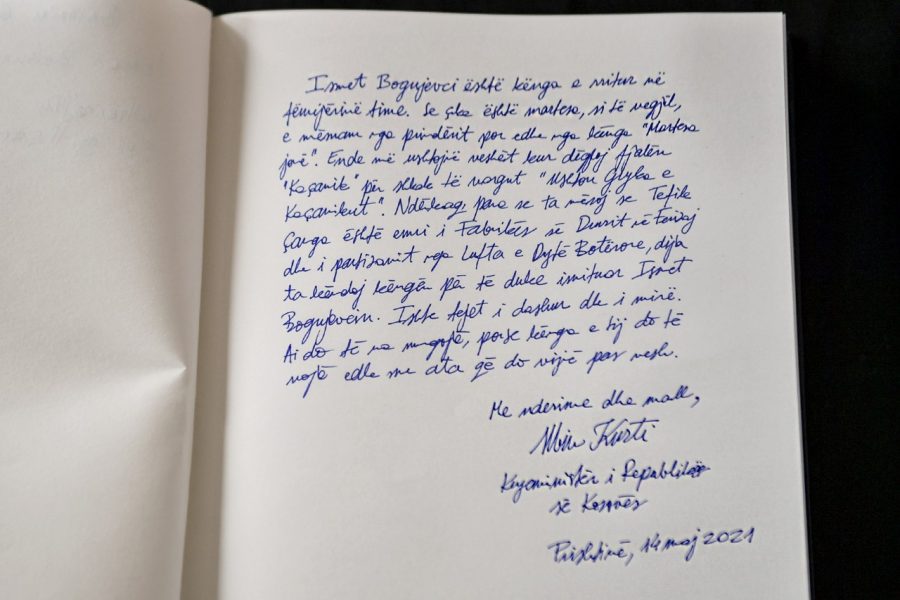 Ismet Bogujevci është kënga e rritur në
fëmijërinë time. Se çka është martesa, si të vegjël,
e mësuam nga prindërit por edhe nga kënga "Martesa
jonë". Ende më ushtojnë veshët kur dëgjoj fjalën
"Kaçanik" për shkak të vargut "Ushton Gryka e
Kaçanikut". Ndërkaq, para se ta mësoj se Tefik
Çanga është emri i Fabrikës së Drurit në Ferizaj
dhe i partizanit nga Lufta e Dytë Botërore, dija
ta këndoj këngën për të duke imituar Ismet
Bogujevcin. Ishte tejet i dashur dhe i mirë.
Ai do të na mungojë, porse kënga e tij do të
rrojë edhe me ata që do vijnë pas nesh.
Me nderime dhe mall,
Albin Kurti
Kryeministër i Republikës
së Kosovës
Prishtinë, 14 maj 2021